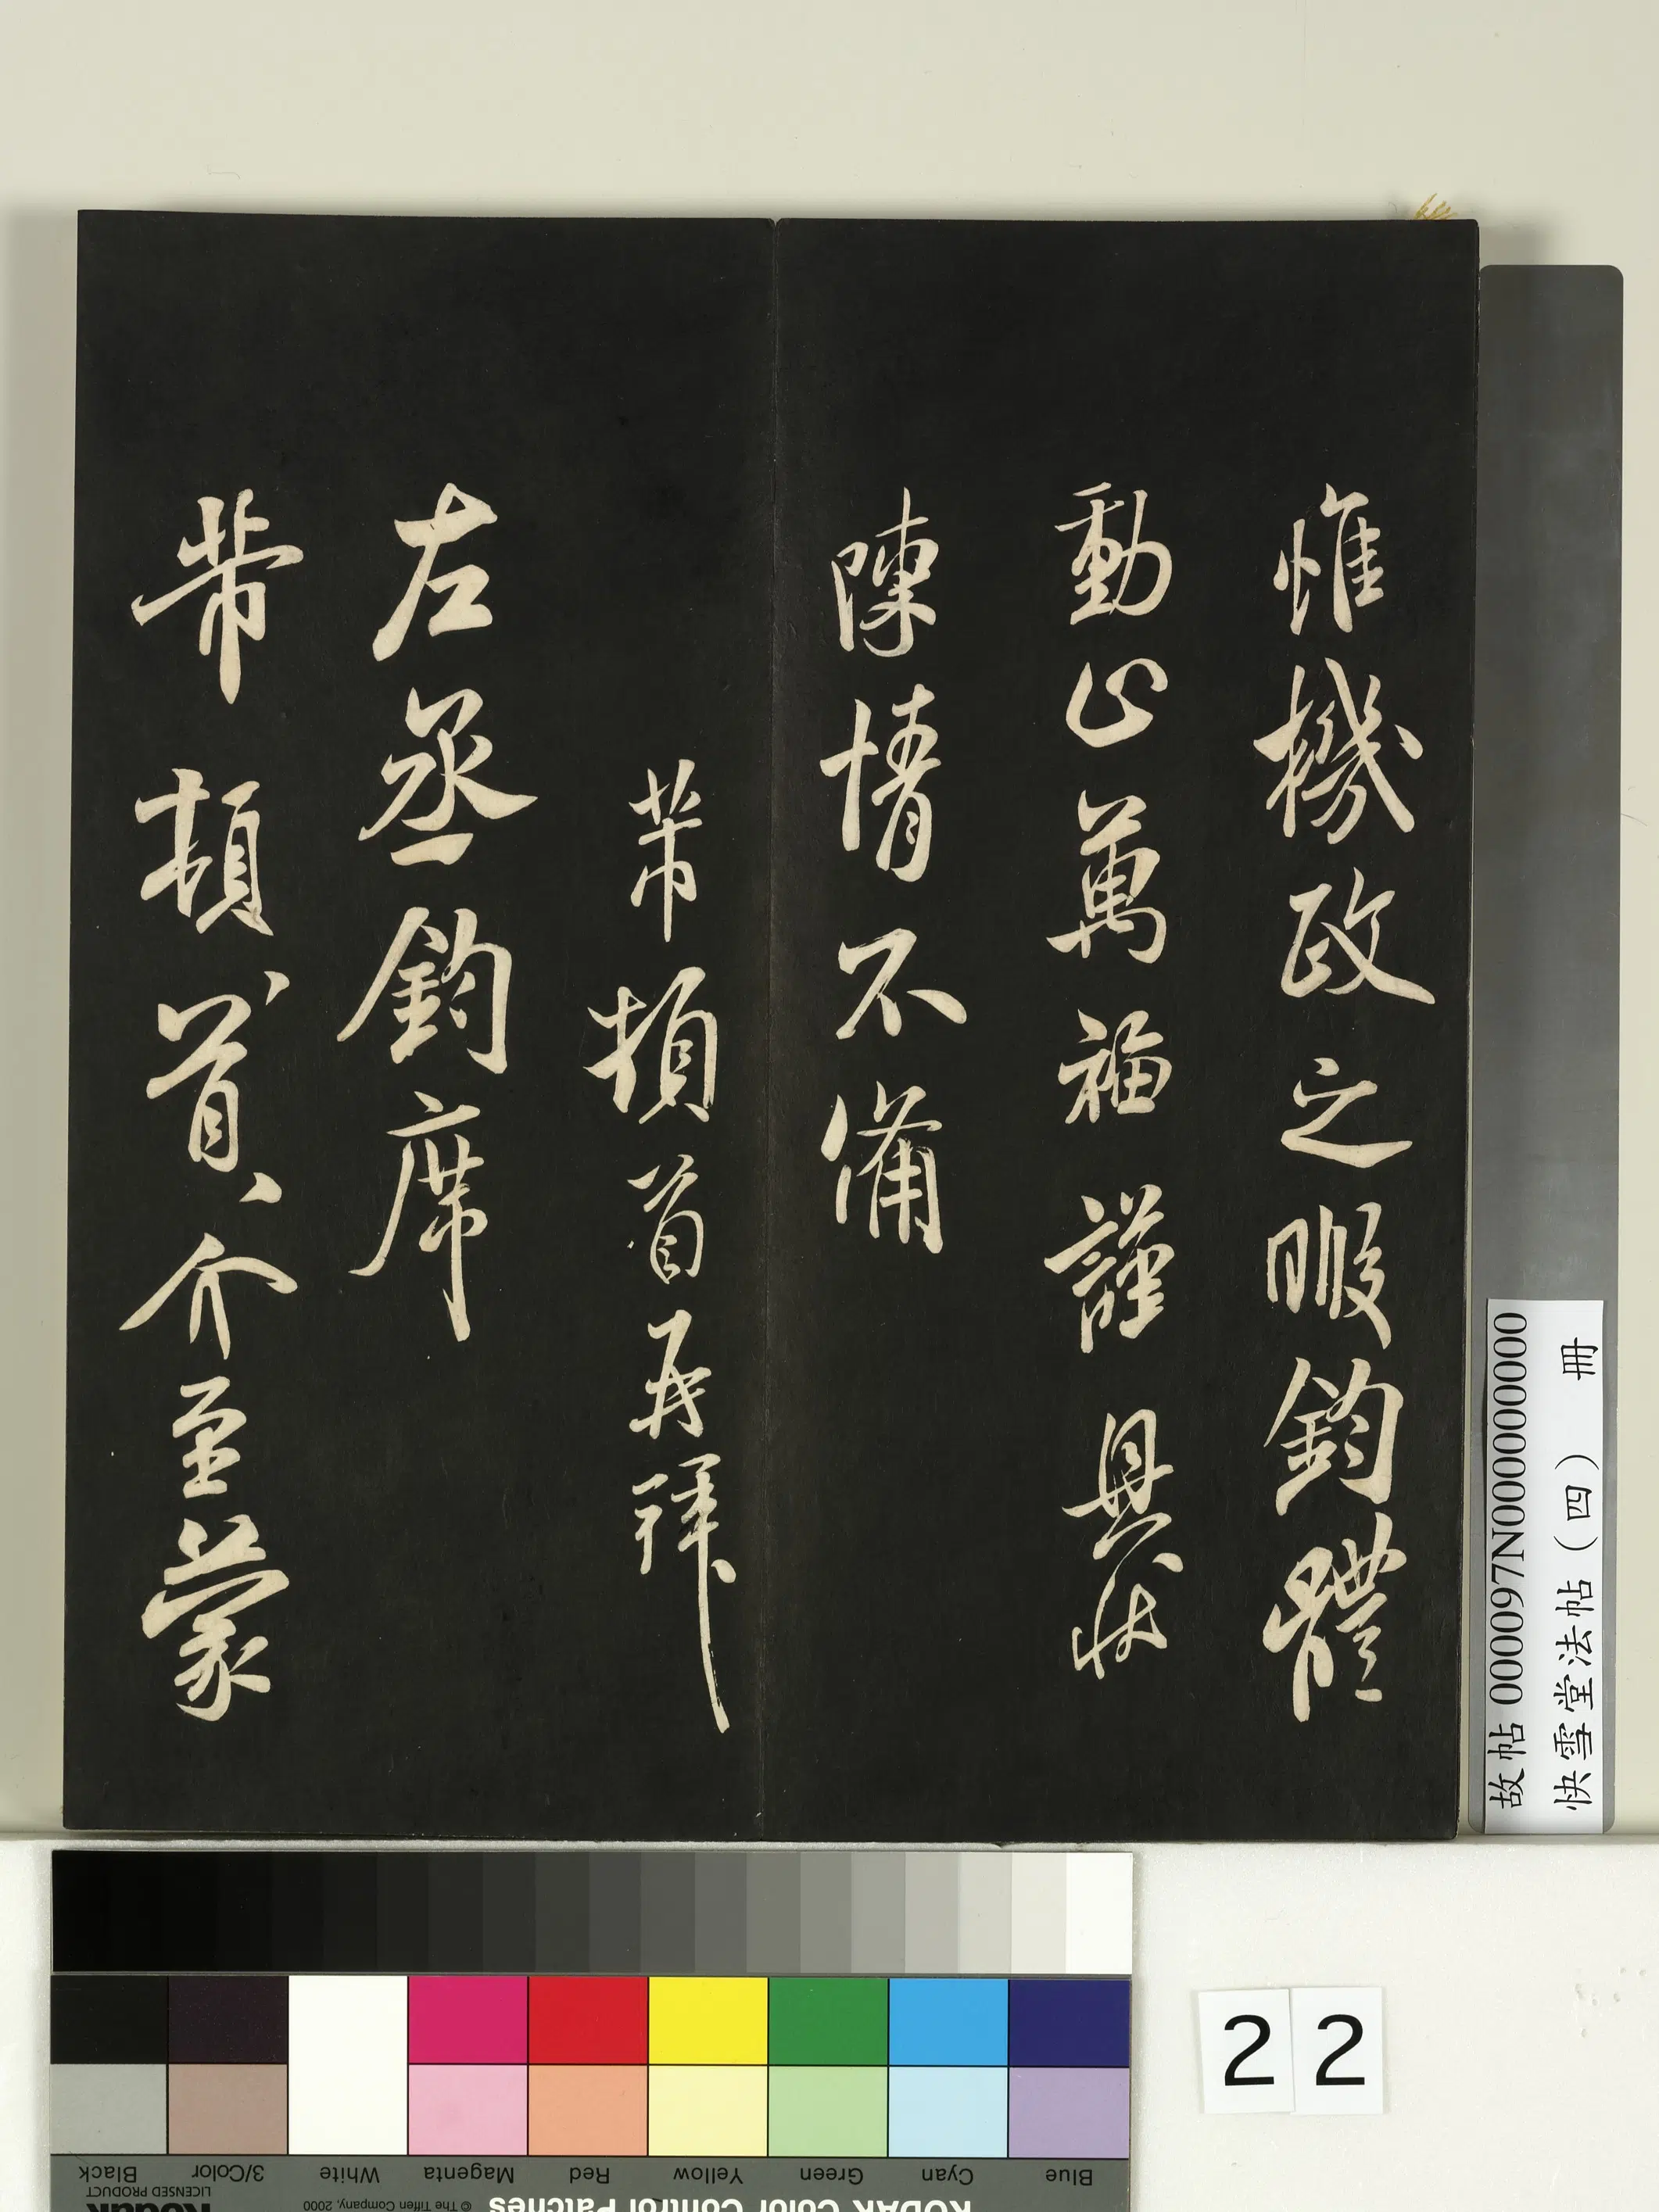 惟機政之暇鈞體
動止萬福謹具狀
陳情不備
芾頓首再拜
左丞鈞席
芾頓首頓首介至蒙
故帖 000097N000000000
快雪堂法帖(四) 冊
22
Black
3/Color
White
Magenta
Red
Yellow
Green
Cyan
Blue
LICENSED PRODUCT
© The Tiffen Company, 2000
KODAK Color Control Patches